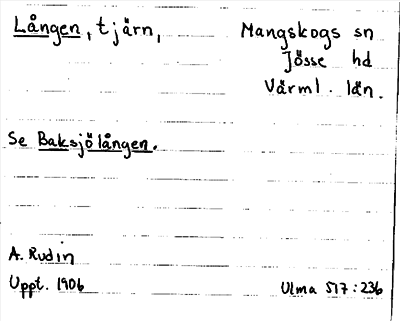 Lången, tjärn, Mangskogs sn
Jösse hd
Värml. län.
Se Baksjölången.
A. Rudin
Uppt. 1906
Ulma 517:236